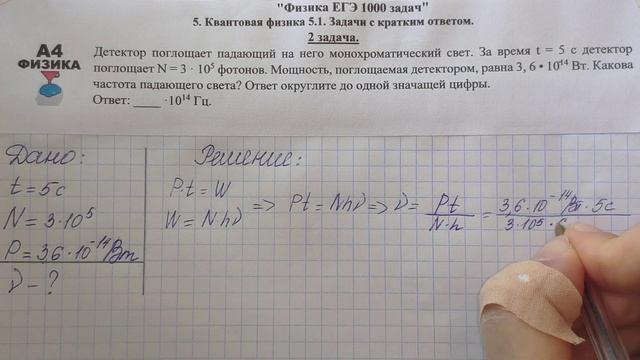 "Физика ЕГЭ 1000 задач"
5. Квантовая физика 5.1. Задачи с кратким ответом.
2 задача.
А4
ФИЗИКА
Детектор поглощает падающий на него монохроматический свет. За время t = 5 с детектор
поглощает N = 3 · 10⁵ фотонов. Мощность, поглощаемая детектором, равна 3, 6 • 10¹⁴ Вт. Какова
частота падающего света? Ответ округлите до одной значащей цифры.
Ответ: ____ ·10¹⁴ Гц.
Дано:
t = 5c
N = 3·10⁵
P = 3,6·10⁻¹⁴ Вт
ν - ?
Решение:
P·t = W
W = Nhν
=> Pt = Nhν => ν = Pt / N·h = 3,6·10⁻¹⁴ Вт · 5c / 3·10⁵ · 6